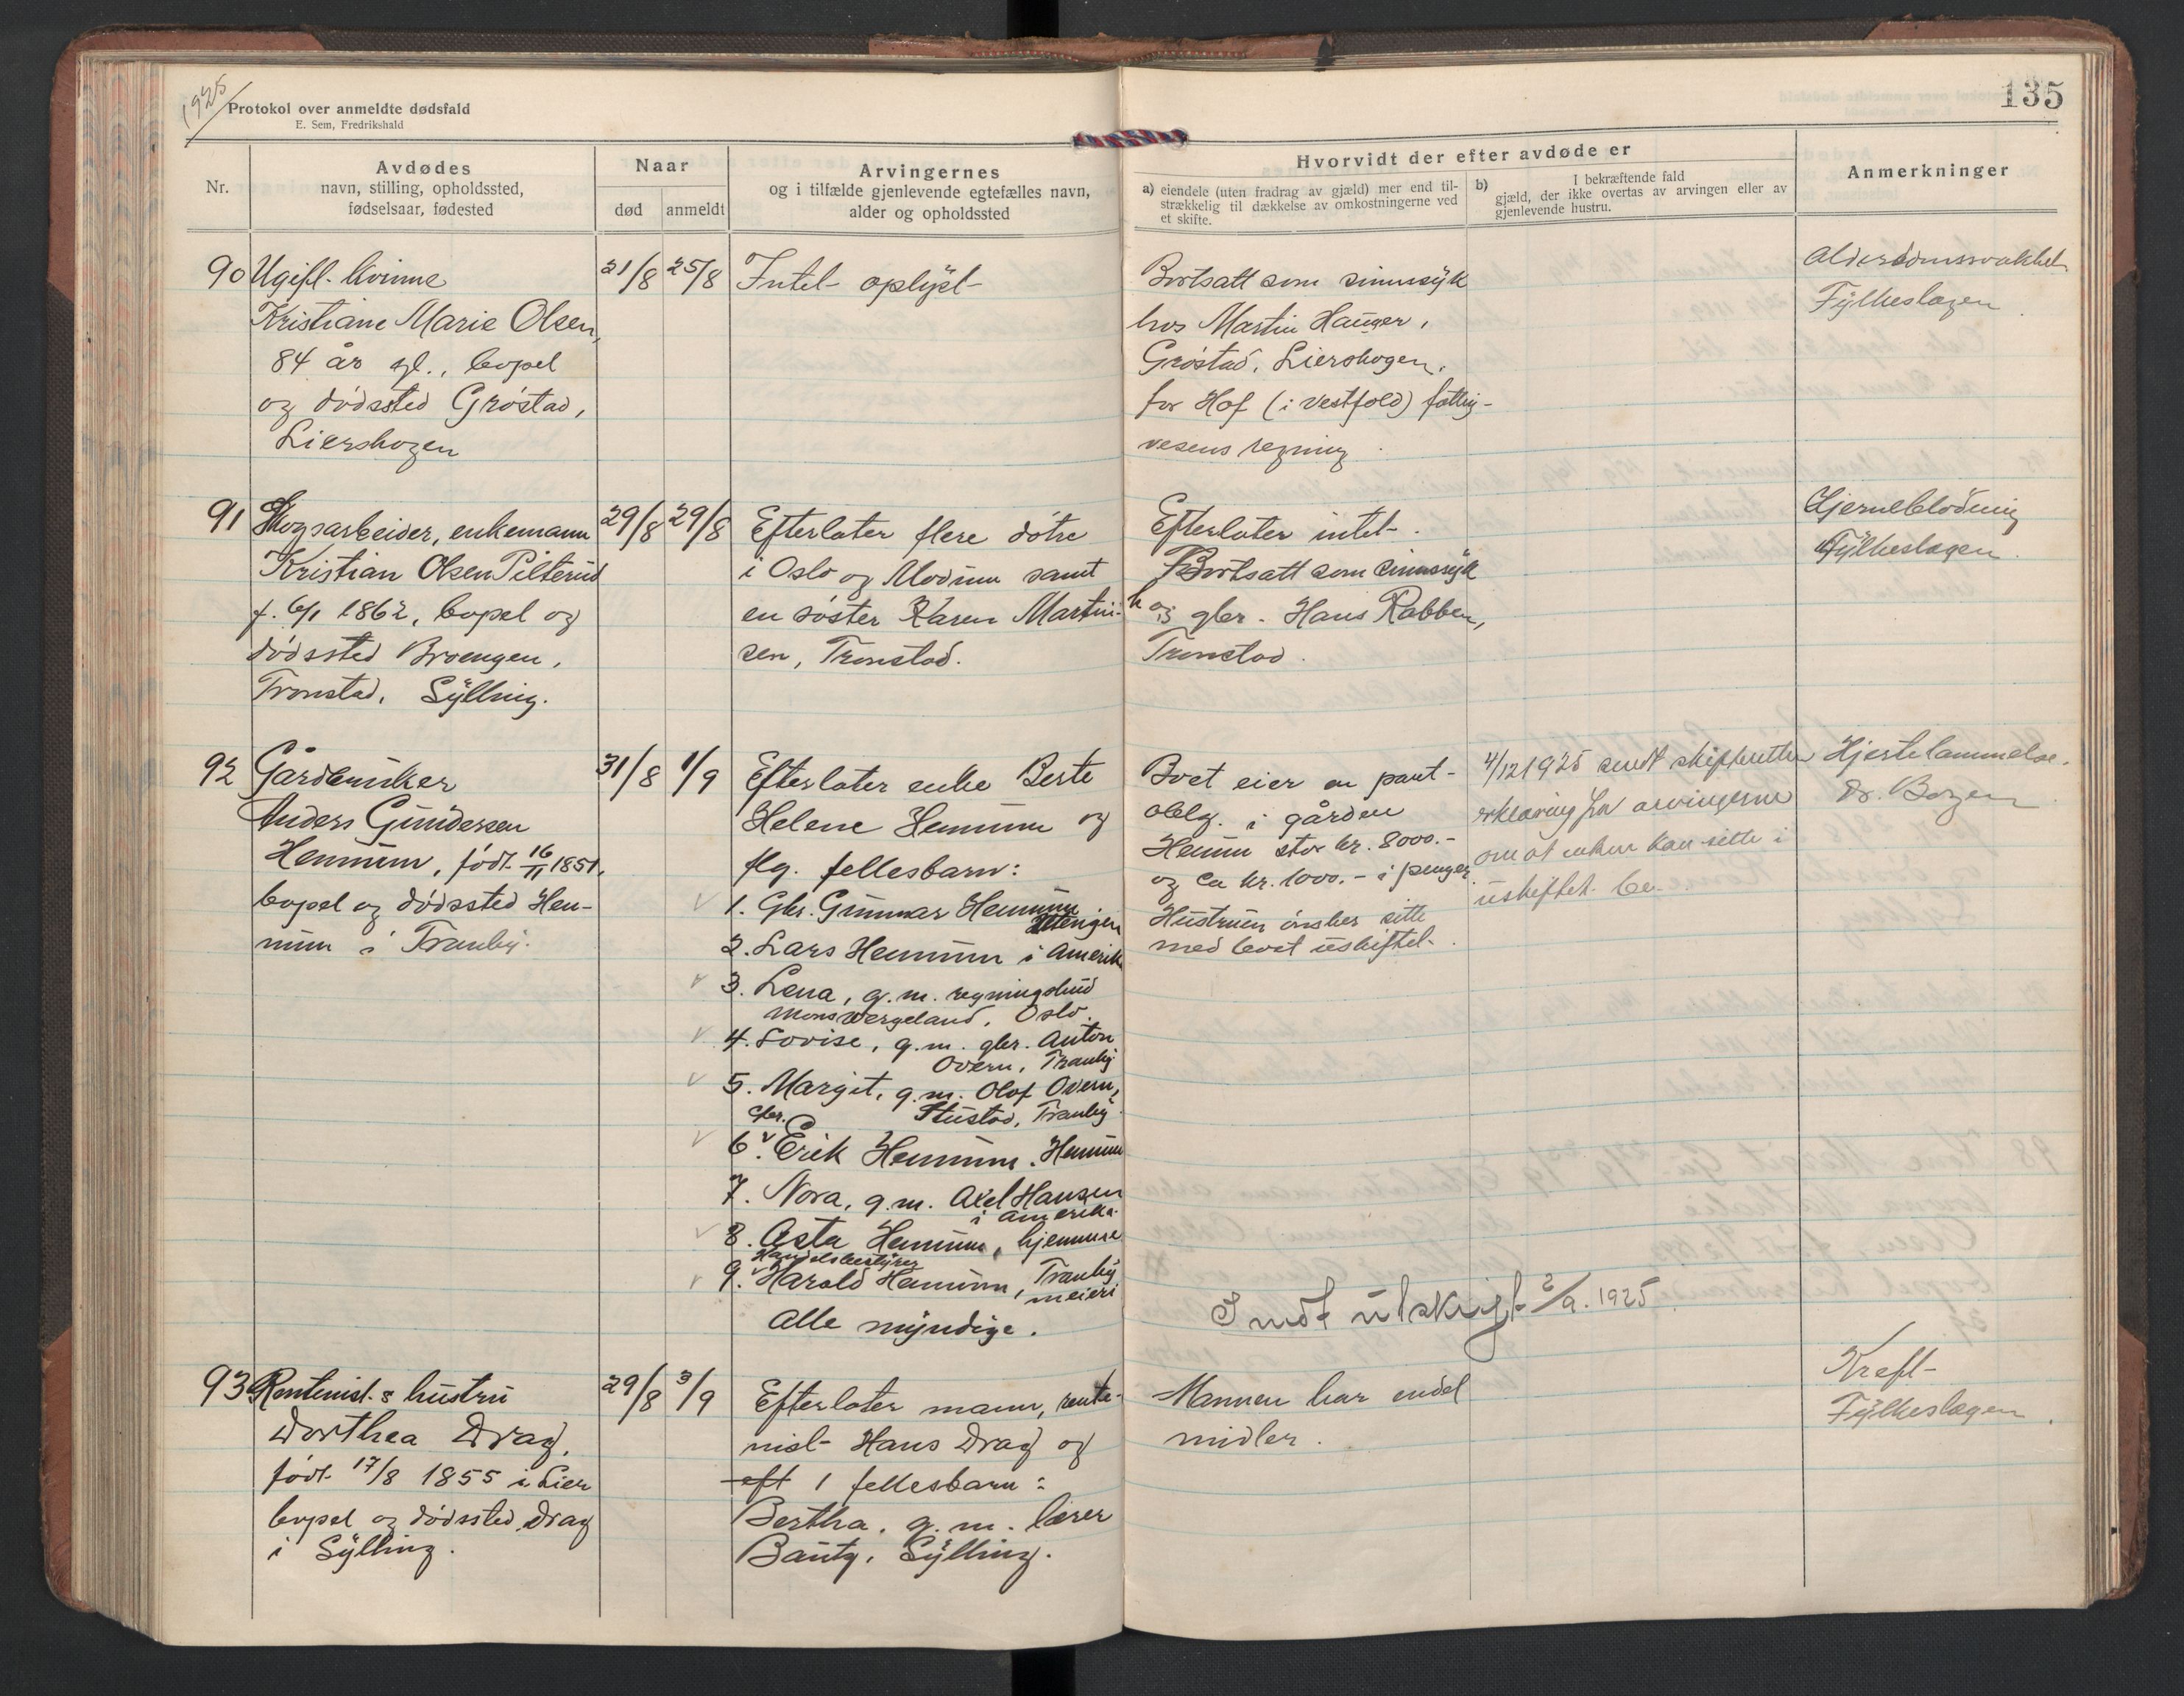 1925
Protokol over anmeldte dødsfald
E. Sem, Fredrikshald
135
Nr.
Avdødes
navn, stilling, opholdssted,
fødselsaar, fødested
Naar
død
anmeldt
Arvingernes
og i tilfælde gjenlevende egtefælles navn,
alder og opholdssted
Hvorvidt der efter avdøde er
a) eiendele (uten fradrag av gjæld) mer end til-
strækkelig til dækkelse av omkostningerne ved
et skifte.
b) I bekræftende fald
gjæld, der ikke overtas av arvingen eller av
gjenlevende hustru.
Anmerkninger
90
Ugift kvinne
Kristiane Marie Olsen,
84 år gl., bopel
og dødssted Grøstad,
Lierskogen
21/8
25/8
Intet oplyst
Bortsatt som sinnssyk
hos Martin Hauger,
Grøstad, Lierskogen,
for Hof (i Vestfold) fattig-
vesens regning
Alderdomssvakhet
Fylkeslægen
91
Skogsarbeider, enkemann
Kristian Olsen Pilterud
f. 6/1 1862, bopel og
dødssted Broengen,
Tronstad, Sylling.
29/8
29/8
Efterlater flere døtre
i Oslo og Modum samt
en søster Karen Martin-
sen, Tronstad.
Efterlater intet.
Bortsatt som sinnssyk
hos gbr. Hans Rabben,
Tronstad.
Hjerneblødning
Fylkeslægen.
92
Gårdbruker
Anders Gundersen
Hennum, født 16/11 1851,
bopel og dødssted Hen-
num i Tranby.
31/8
1/9
Efterlater enke Berte
Helene Hennum og
flg. fellesbarn:
1. Gbr. Gunnar Hennum
2. Lars Hennum i Amerika
3. Lena, g.m. regningsbud
Mons Wergeland, Oslo.
4. Lovise, g.m. gbr. Anton
Overn, Tranby
5. Margit, g.m. Olaf Overn,
Stustad, Tranby.
gbr.
6. Erik Hennum, Hennum
7. Nora, g.m. Axel Hansen
i Amerika.
8. Asta Hennum, hjemme
Handelsbestyrer
9. Harald Hennum, Tranby
meieri
Alle myndige.
Boet eier en pant-
oblg. i gården
Hennum stor kr. 8000.-
og ca kr. 1000.- i penger.
Hustruen ønsker sitte
med boet uskiftet.
4/12 1925 sendt skifteretten
erklæring fra arvingerne
om at enken kan sitte i
uskiftet bo.
Hjertelammelse.
Dr. Borgen
Sendt utskrift 2/9. 1925
93
Rentenist.s hustru
Dorthea Drag,
født 17/8 1855 i Lier
bopel og dødssted Drag
i Sylling.
29/8
3/9
Efterlater mann, rente-
nist Hans Drag og
eft 1 fellesbarn:
Bertha, g.m. lærer
Bautz, Sylling.
Mannen har endel
midler.
Kreft
Fylkeslægen.